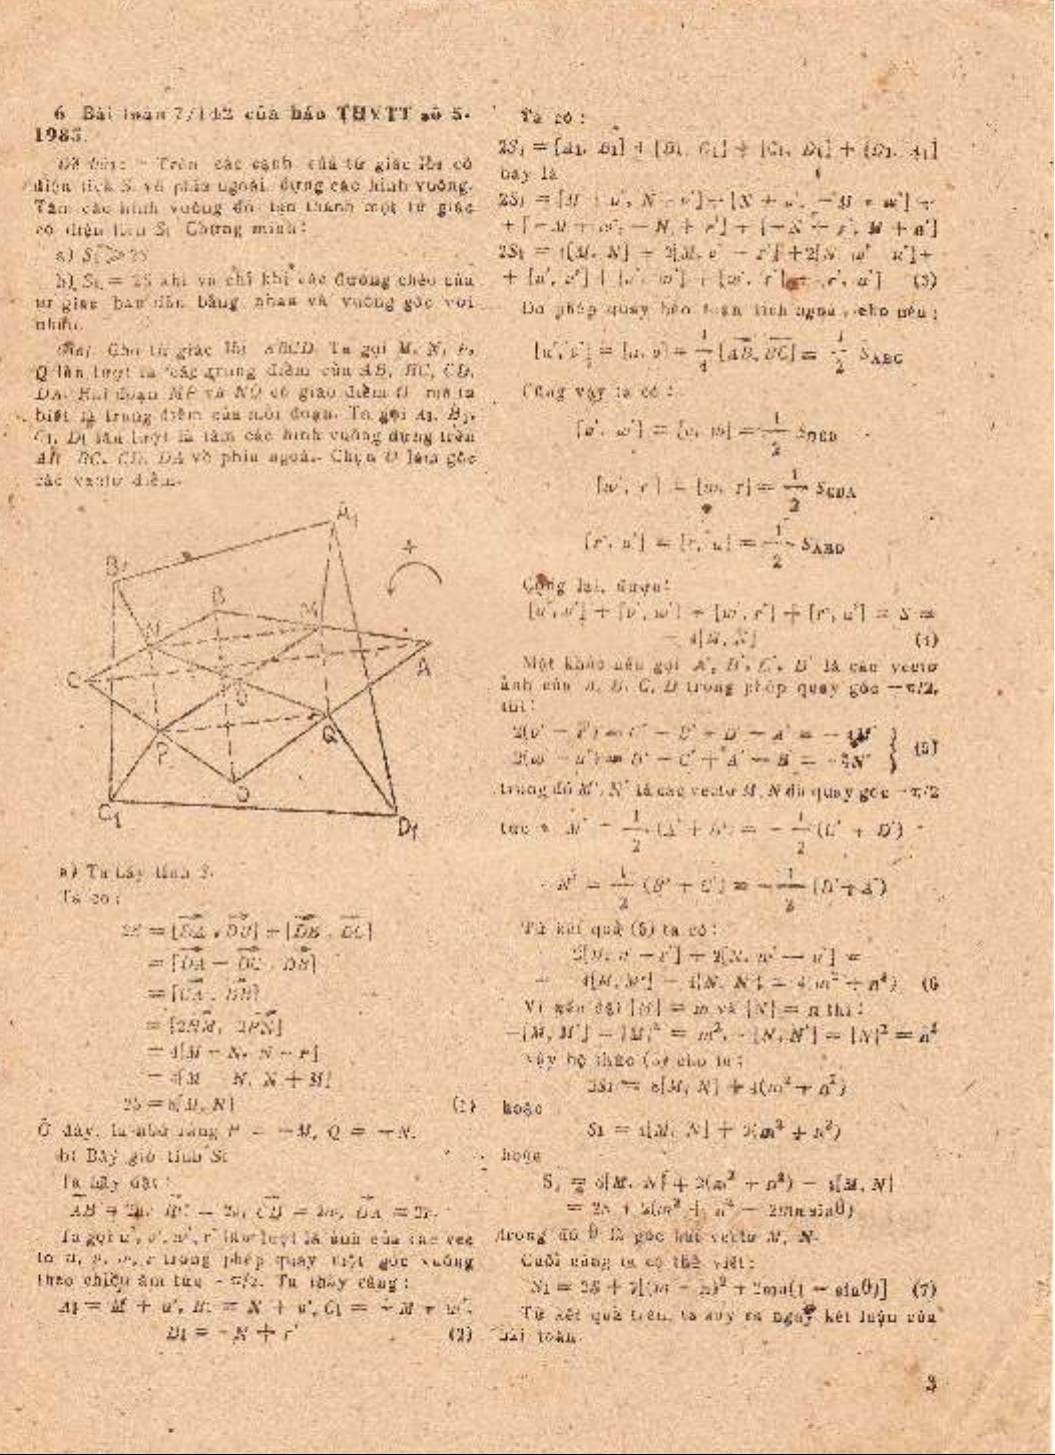 6 Bài toán 7/142 của báo THVTT số 5-
1985.
Đề bài: - Trên các cạnh của tứ giác lồi có
diện tích S, về phía ngoài, dựng các hình vuông.
Tâm các hình vuông đó tạo thành một tứ giác
có diện tích S₁ Chứng minh:
a) S₁ ⩾ 2S
b) S₁ = 2S khi và chỉ khi các đường chéo của
tứ giác ban đầu bằng nhau và vuông góc với
nhau.
Giải. Cho tứ giác lồi ABCD. Ta gọi M, N, P,
Q lần lượt là các trung điểm của AB, BC, CD,
DA. Hai đoạn MP và NQ có giao điểm O mà ta
biết là trung điểm của mỗi đoạn. Ta gọi A₁, B₁,
C₁, D₁ lần lượt là tâm các hình vuông dựng trên
AB, BC, CD, DA về phía ngoài. Chọn O làm gốc
các vectơ điểm.
A₁
B₁
+
B
M
N
C
A
O
P
Q
D
C₁
D₁
a) Ta hãy tính S.
Ta có:
2S = [DA, DB] + [DB, DC]
= [DA − DC, DB]
= [CA, DB]
= [2NM, 2PN]
= 4[M − N, N − P]
= 4[M − N, N + M]
2S = 8[M, N] (1)
Ở đây, ta nhớ rằng P = −M, Q = −N.
b) Bây giờ tính S₁
Ta hãy đặt:
AB = 2u, BC = 2v, CD = 2w, DA = 2r.
Ta gọi u', v', w', r' lần lượt là ảnh của các vec
tơ u, v, w, r trong phép quay một góc vuông
theo chiều âm tức −π/2. Ta thấy rằng:
A₁ = M + u', B₁ = N + v', C₁ = −M + w',
D₁ = −N + r' (2)
Ta có:
2S₁ = [A₁, B₁] + [B₁, C₁] + [C₁, D₁] + [D₁, A₁]
hay là
2S₁ = [M + u', N + v'] + [N + v', −M + w'] +
+ [−M + w', −N + r'] + [−N + r', M + u']
2S₁ = 4[M, N] + 2[M, v' − r'] + 2[N, w' − u'] +
+ [u', v'] + [v', w'] + [w', r'] + [r', u'] (3)
Do phép quay bảo toàn tích ngoài, cho nên:
[u', v'] = [u, v] = 1/4 [AB, BC] = 1/2 S_ABC
Cũng vậy ta có:
[v', w'] = [v, w] = 1/2 S_BCD
[w', r'] = [w, r] = 1/2 S_CDA
[r', u'] = [r, u] = 1/2 S_ABD
Cộng lại, được:
[u', v'] + [v', w'] + [w', r'] + [r', u'] = S =
= 4[M, N] (4)
Mặt khác nếu gọi A', B', C', D' là các vectơ
ảnh của A, B, C, D trong phép quay góc −π/2,
thì:
2(v' − r') = C' − B' + D' − A' = −4M'
2(w' − u') = D' − C' + A' − B' = −4N' } (5)
trong đó M', N' là các vectơ M, N đã quay góc −π/2
tức là M' = 1/2 (A' + B') = − 1/2 (C' + D')
N' = 1/2 (B' + C') = − 1/2 (D' + A')
Từ kết quả (5) ta có:
2[M, v' − r'] + 2[N, w' − u'] =
= −4[M, M'] − 4[N, N'] = 4(m² + n²) (6
Vì nếu đặt |M| = m và |N| = n thì:
−[M, M'] = |M|² = m², −[N, N'] = |N|² = n²
Vậy hệ thức (3) cho ta:
2S₁ = 8[M, N] + 4(m² + n²)
hoặc
S₁ = 4[M, N] + 2(m² + n²)
hoặc
S₁ = 8[M, N] + 2(m² + n²) − 4[M, N]
= 2S + 2(m² + n² − 2mnsinθ)
trong đó θ là góc hai vectơ M, N.
Cuối cùng ta có thể viết:
S₁ = 2S + 2[(m − n)² + 2mn(1 − sinθ)] (7)
Từ kết quả trên, ta suy ra ngay kết luận của
bài toán.
3